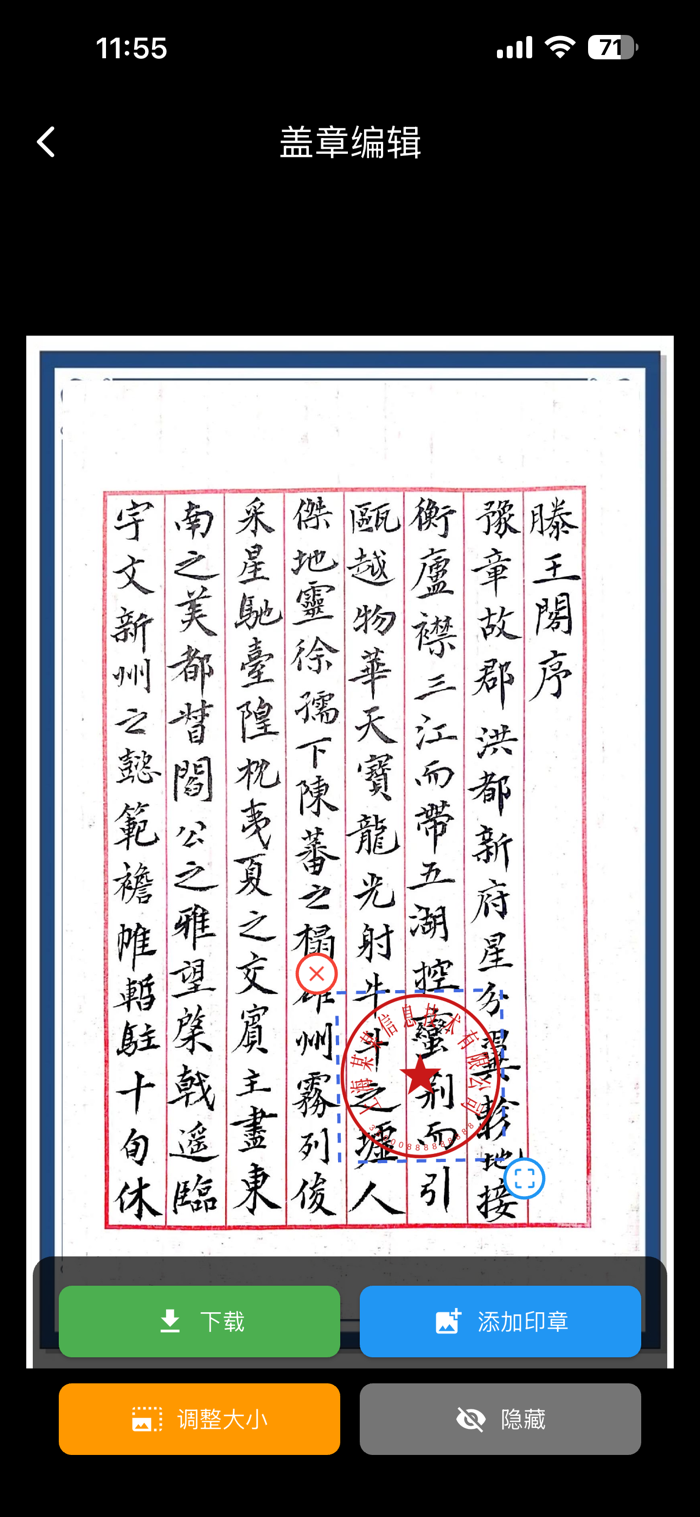 11:55
71
盖章编辑
滕王閣序
豫章故郡洪都新府星分翼軫地接
衡廬襟三江而帶五湖控蠻荆而引
甌越物華天寶龍光射牛斗之墟人
傑地靈徐孺下陳蕃之榻雄州霧列俊
采星馳臺隍枕夷夏之交賓主盡東
南之美都督閻公之雅望棨戟遥臨
宇文新州之懿範襜帷暫駐十旬休
上海某某信息技术有限公司
下载
添加印章
调整大小
隐藏